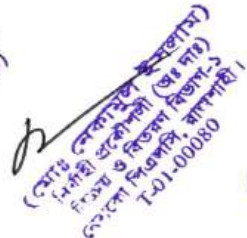 (মোঃ রেফাতুল ইসলাম)
নির্বাহী প্রকৌশলী (অঃ দাঃ)
বিক্রয় ও বিতরণ বিভাগ-১
নেসকো পিএলসি, রাজশাহী।
T-01-00080